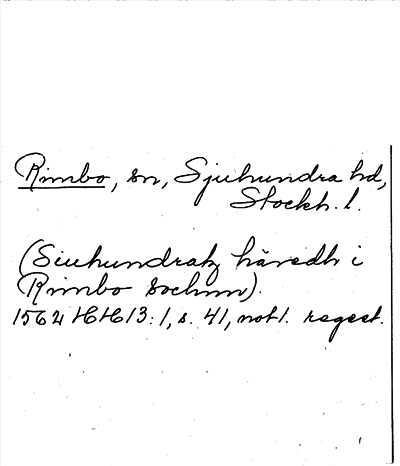 Rimbo, sn, Sjuhundra hd,
Stockh. l.
(Siuhundratz häredh i
Rimbo sochnn).
1562 HH 13:1, s. 41, not 1. regest.